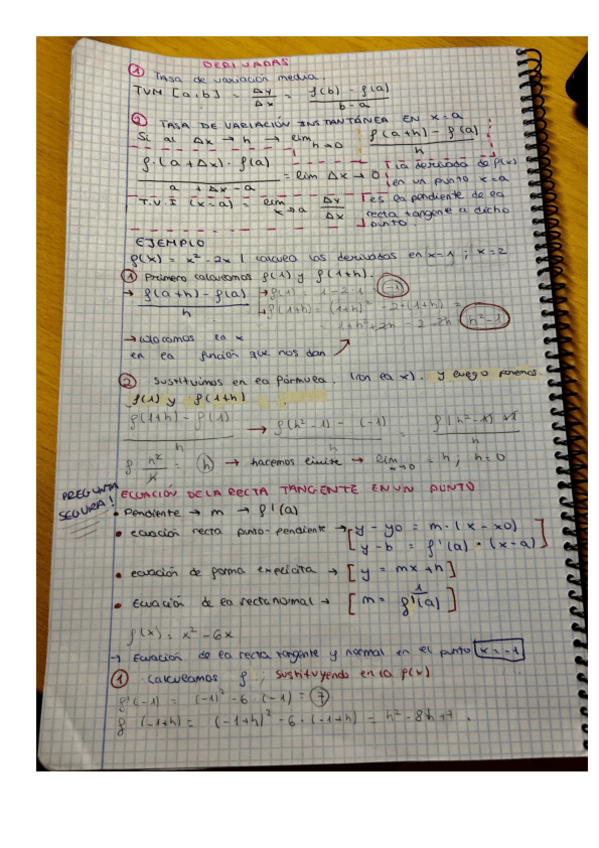 DERIVADAS
① Tasa de variación media.
TVM [a,b] = Δy/Δx = f(b) - f(a) / b-a
② TASA DE VARIACIÓN INSTANTÁNEA EN x=a
Si al Δx → h → lim h→0 f(a+h) - f(a) / h
f·(a+Δx)·f(a) / a+Δx-a = lim Δx→0
T.V.I (x=a) = lim x→a Δy/Δx
la derivada de f(x)
en un punto x=a
es la pendiente de la
recta tangente a dicho
punto.
EJEMPLO
f(x) = x² - 2x | calcula las derivadas en x=1 ; x=2
① Primero calculamos f(1) y f(1+h).
→ f(a+h) - f(a) / h
→ f(1) = 1-2·1 -1
→ f(1+h) = (1+h)² - 2·(1+h) =
= 1+h²+2h - 2 - 2h h²-1
→ colocamos la x
en la función que nos dan
② Sustituimos en la fórmula. (con la x). y luego ponemos
f(1) y f(1+h)
f(1+h) - f(1) / h → f(h²-1) - (-1) / h
h²/h = h → hacemos límite → lim →0 = h ; h=0
PREGUNTA SEGURA!
ECUACIÓN DE LA RECTA TANGENTE EN UN PUNTO
• Pendiente → m → f'(a)
• ecuación recta punto-pendiente → [y - y0 = m·(x - x0)
y - b = f'(a)·(x-a)]
• ecuación de forma explícita → [y = mx+n]
• Ecuación de la recta normal → [m = 1/f'(a)]
f(x) = x² - 6x
→ Ecuación de la recta tangente y normal en el punto x = -1
① Calculamos f ; sustituyendo en la f(x)
f'(-1) = (-1)² - 6·(-1) = 7
f (-1+h) = (-1+h)² - 6·(-1+h) = h² - 8h + 7.